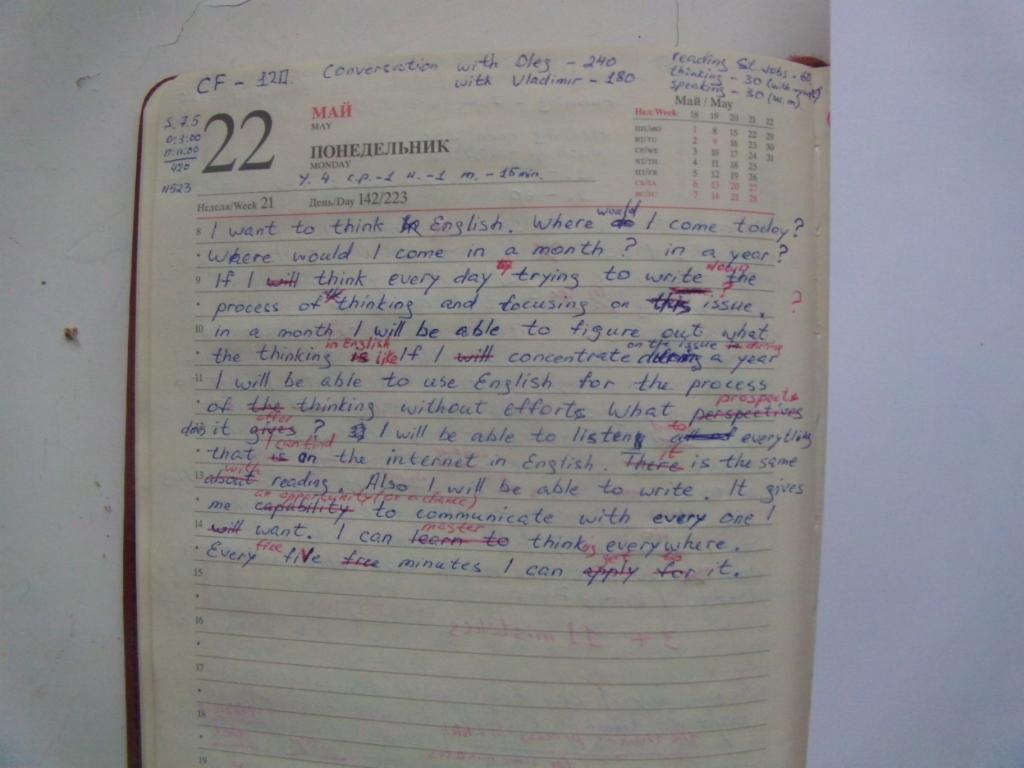 CF - 12П. Conversation with Oleg - 240
with Vladimir - 180
reading St Jobs - 60
thinking - 30
speaking - 30
22
МАЙ
MAY
ПОНЕДЕЛЬНИК
MONDAY
S. 7.5
0:3:00
11:00
420
N523
Май / May
Нед/Week 18 19 20 21 22
ПН/MO 1 8 15 22 29
ВТ/TU 2 9 16 23 30
СР/WE 3 10 17 24 31
ЧТ/TH 4 11 18 25
ПТ/FR 5 12 19 26
СБ/SA 6 13 20 27
ВС/SU 7 14 21 28
У. 4. с.р.-1 н.-1 т. - 15 min.
Неделя/Week 21 День/Day 142/223
would
8 I want to think in English. Where do I come today?
Where would I come in a month? in a year?
9 If I will think every day trying to write the
process of thinking and focusing on this issue. ?
10 in a month I will be able to figure out what
in English on the issue during
the thinking is like If I will concentrate during a year
11 I will be able to use English for the process
prospects
of the thinking without efforts. What perspectives
offer to
does it gives? I will be able to listen everything
I can find it
that is on the internet in English. There is the same
with
13 about reading. Also I will be able to write. It gives
an opportunity (or a chance)
me capability to communicate with every one I
master
14 will want. I can learn to thinking everywhere.
free get to
Every five free minutes I can apply for it.
15
16
17
18
19
3 + 11 mistakes